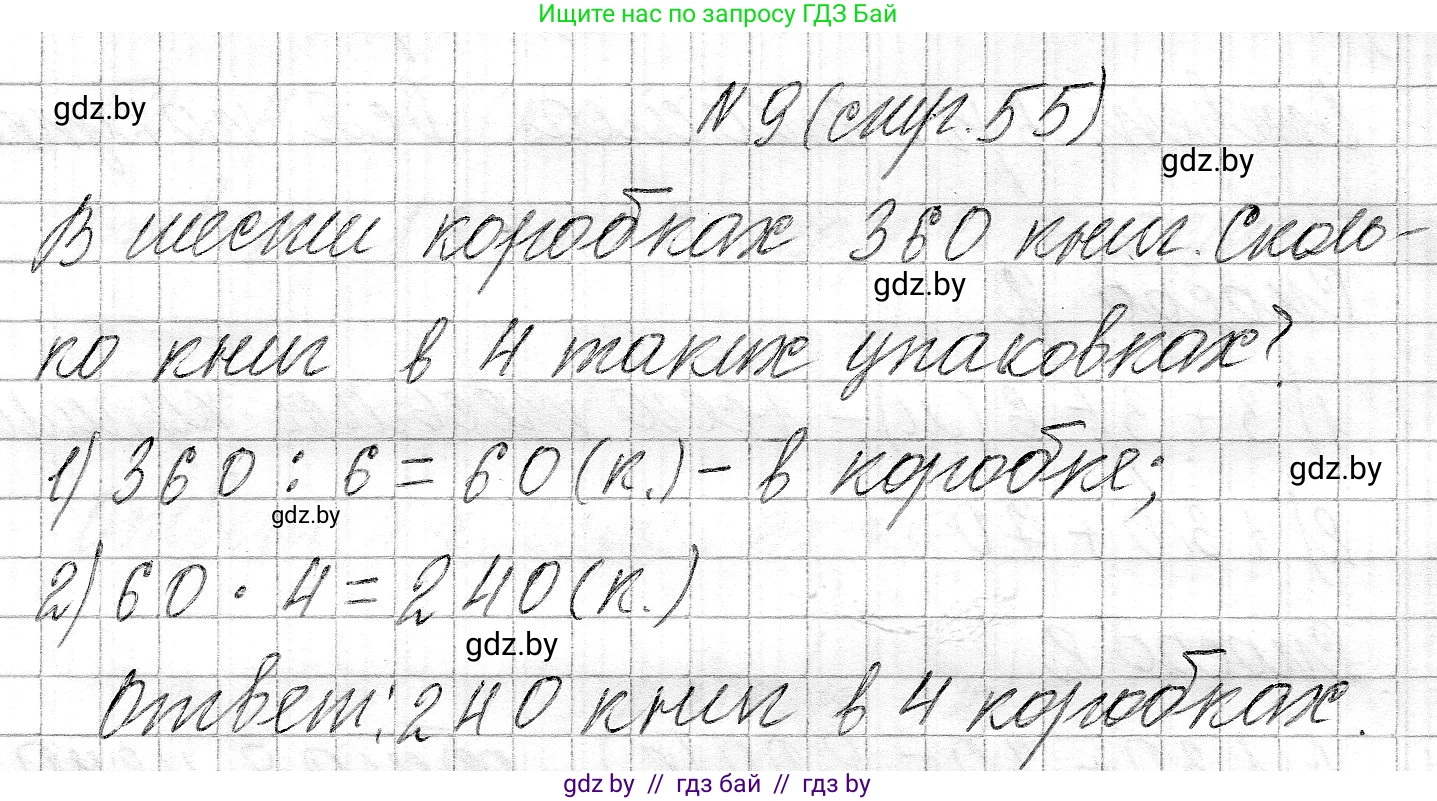 Ищите нас по запросу ГДЗ Бай
gdz.by
N 9 (стр. 55)
gdz.by
В шести коробках 360 книг. Сколь-
gdz.by
ко книг в 4 таких упаковках?
1) 360 : 6 = 60 (к.) – в коробке;
gdz.by
gdz.by
2) 60 · 4 = 240 (к.)
gdz.by
Ответ: 240 книг в 4 коробках.
gdz.by // гдз бай // гдз by